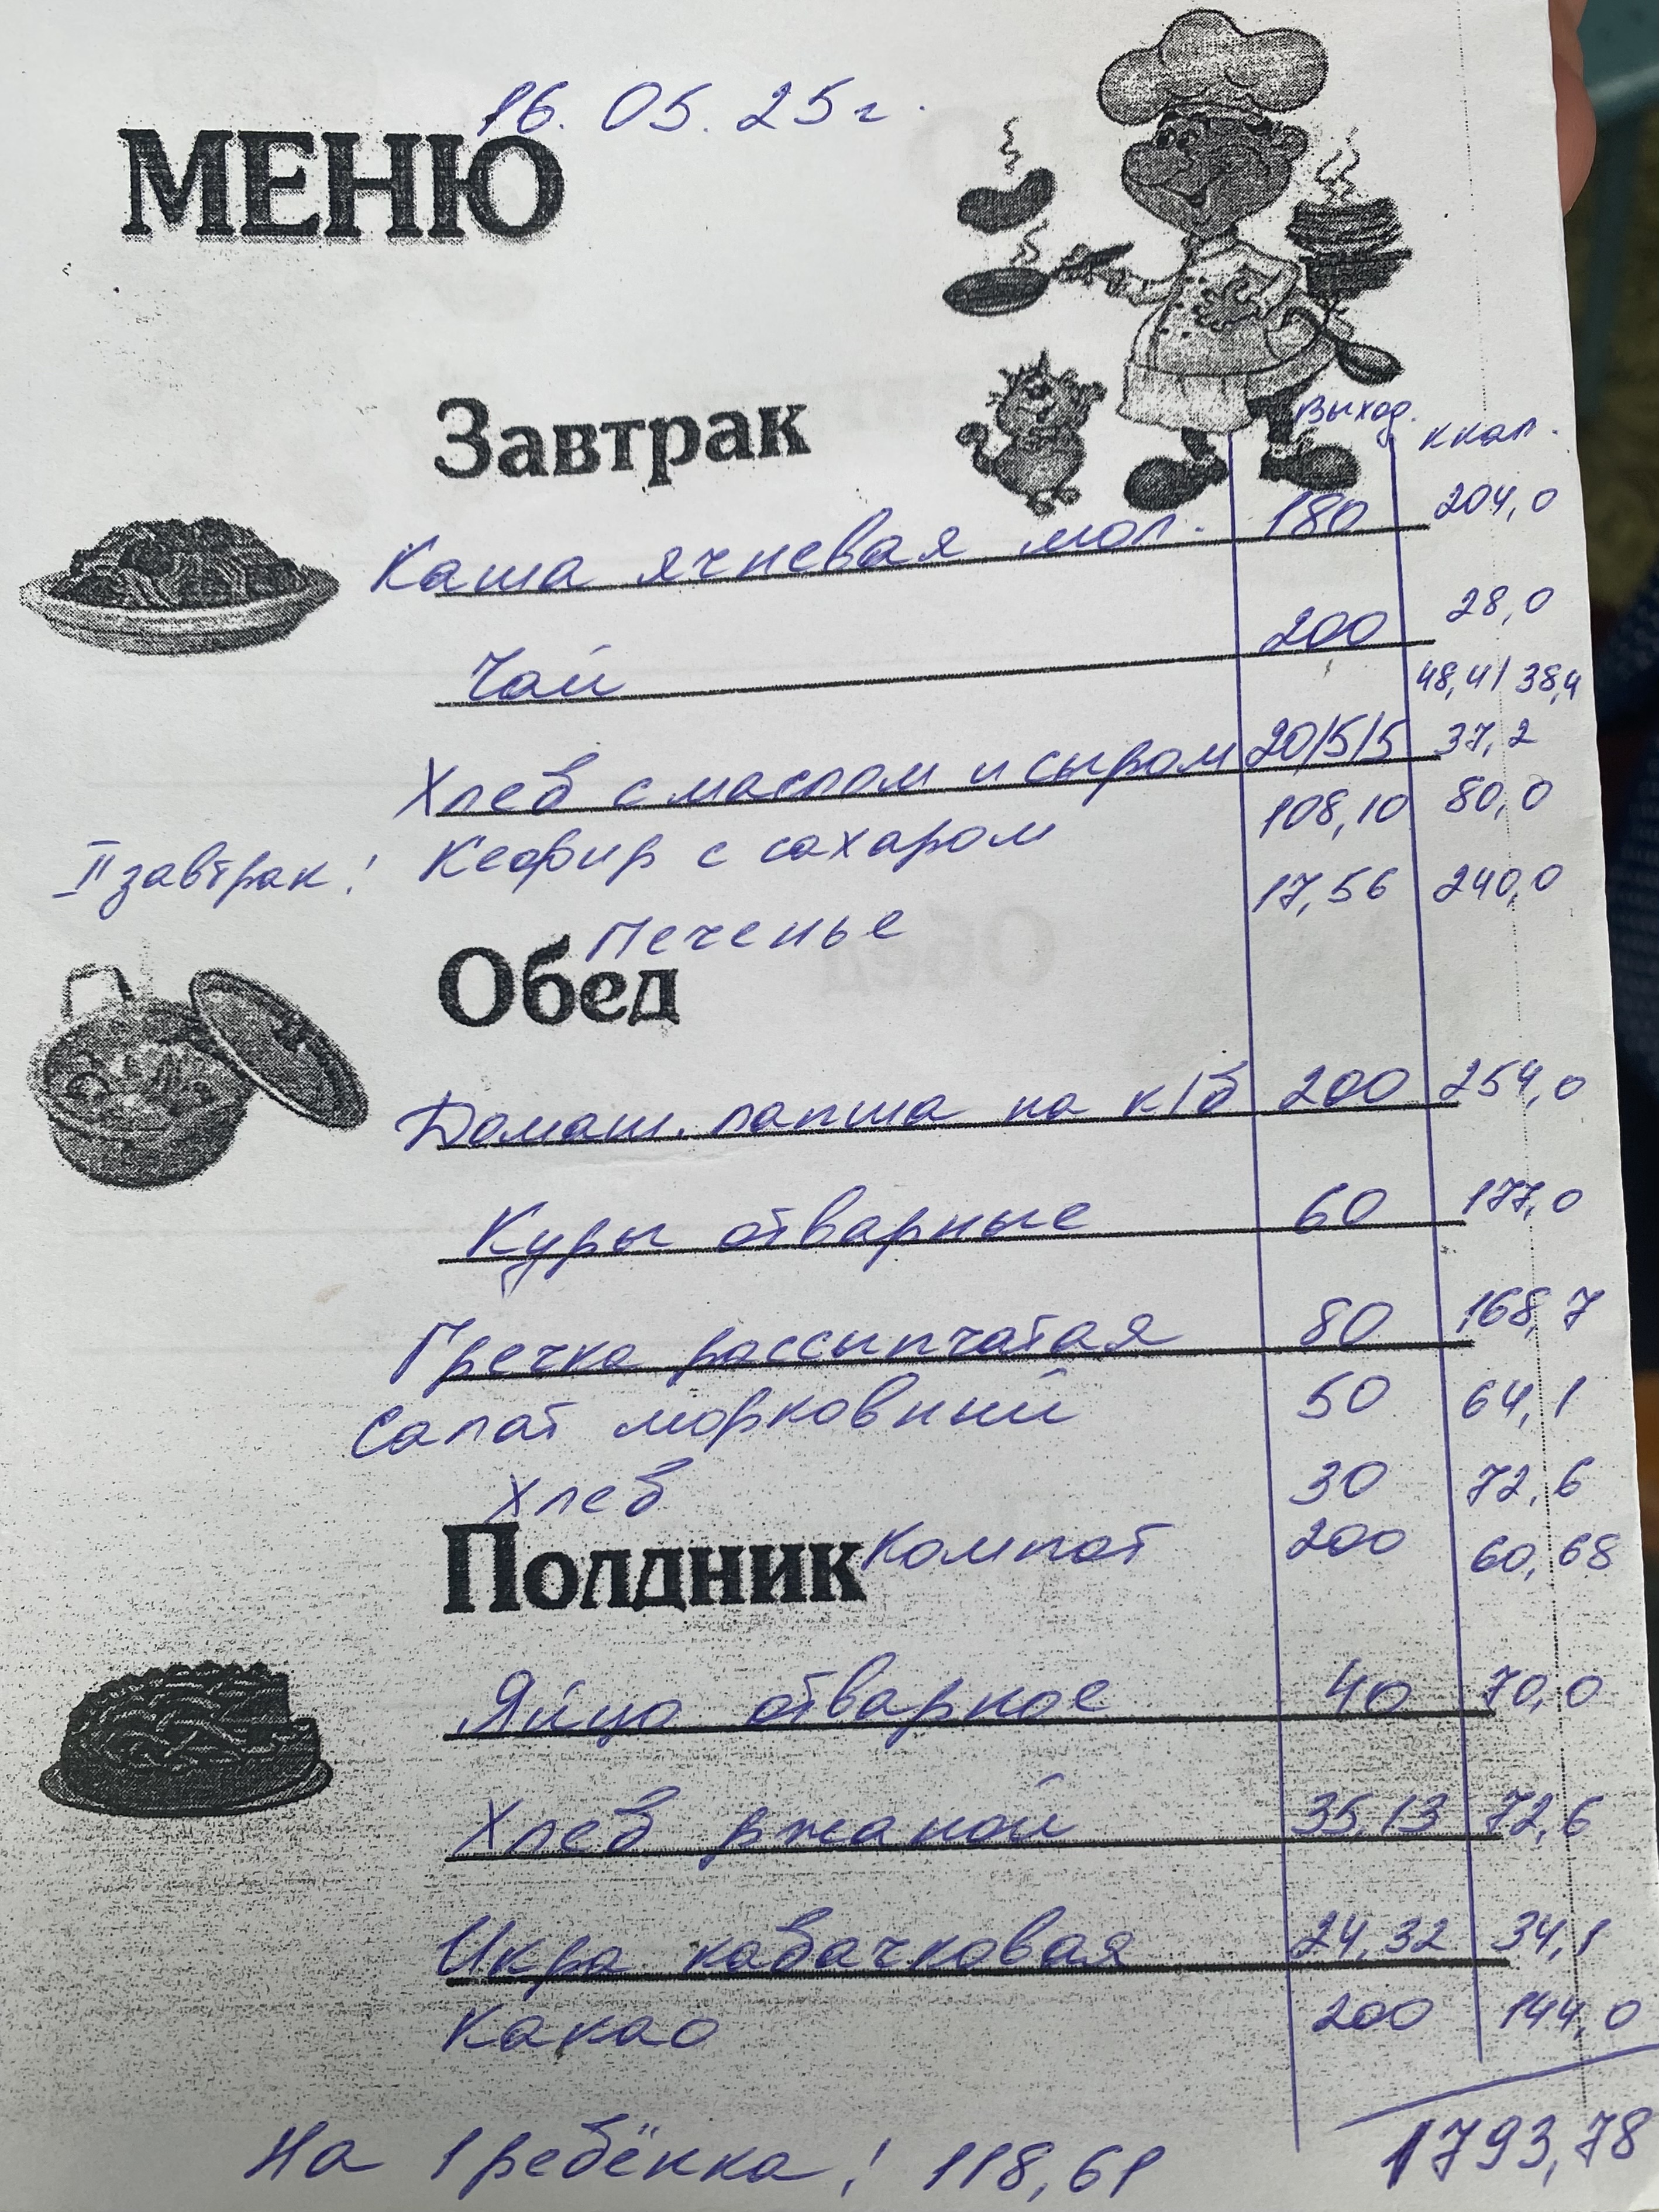 16.05.25г.
МЕНЮ
Завтрак
Выход. ккал.
Каша ячневая мол. 180 204,0
Чай 200 28,0
48,4/38,4
Хлеб с маслом и сыром 20/5/5 37,2
II завтрак: Кефир с сахаром 108,10 80,0
Печенье 17,56 240,0
Обед
Домаш. лапша на к/б 200 254,0
Куры отварные 60 177,0
Гречка рассыпчатая 80 168,7
Салат морковный 50 64,1
Хлеб 30 72,6
Полдник Компот 200 60,68
Яйцо отварное 40 70,0
Хлеб ржаной 35,13 72,6
Икра кабачковая 24,32 34,1
Какао 200 144,0
1793,78
На 1 ребёнка: 118,61